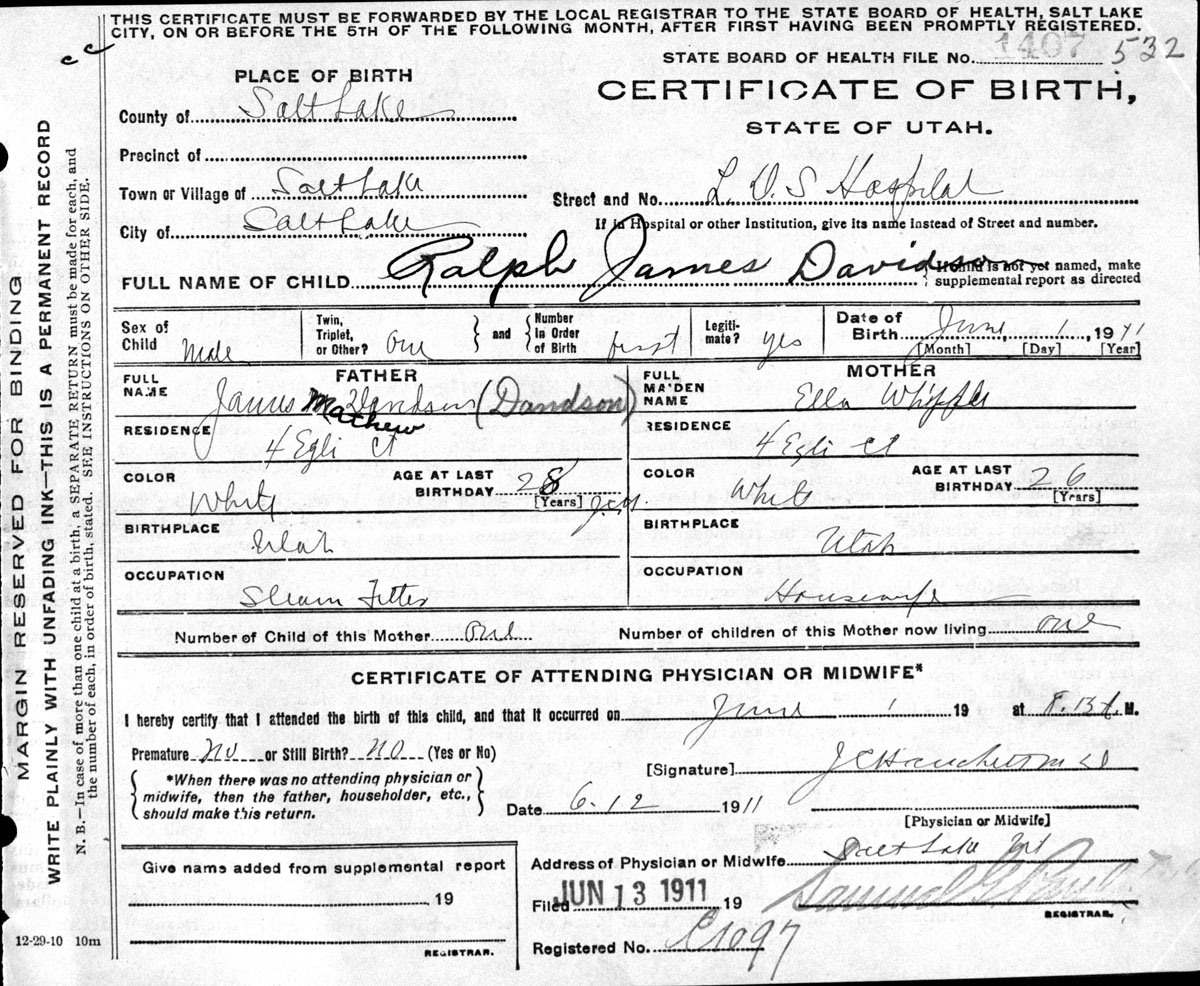 THIS CERTIFICATE MUST BE FORWARDED BY THE LOCAL REGISTRAR TO THE STATE BOARD OF HEALTH, SALT LAKE
CITY, ON OR BEFORE THE 5TH OF THE FOLLOWING MONTH, AFTER FIRST HAVING BEEN PROMPTLY REGISTERED.
STATE BOARD OF HEALTH FILE No. 1407 532
PLACE OF BIRTH
CERTIFICATE OF BIRTH,
STATE OF UTAH.
County of Salt Lake
Precinct of
Town or Village of Salt Lake
Street and No. L. D. S Hospital
City of Salt Lake
If in Hospital or other Institution, give its name instead of Street and number.
FULL NAME OF CHILD Ralph James Davidson
If child is not yet named, make
supplemental report as directed
Sex of Child Male
Twin, Triplet, or Other? One
and
Number in Order of Birth first
Legitimate? yes
Date of Birth June 1, 1911
[Month] [Day] [Year]
FATHER
FULL NAME James Mathew (Davidson)
RESIDENCE
4 Egli Ct
COLOR
White
AGE AT LAST BIRTHDAY 28
[Years]
BIRTHPLACE
Utah
OCCUPATION
Steam Fitter
MOTHER
FULL MAIDEN NAME Ella Whipple
RESIDENCE
4 Egli Ct
COLOR
White
AGE AT LAST BIRTHDAY 26
[Years]
BIRTHPLACE
Utah
OCCUPATION
Housewife
Number of Child of this Mother One
Number of children of this Mother now living one
CERTIFICATE OF ATTENDING PHYSICIAN OR MIDWIFE*
I hereby certify that I attended the birth of this child, and that it occurred on June 1 19 at M.
Premature No or Still Birth? NO (Yes or No)
*When there was no attending physician or
midwife, then the father, householder, etc.,
should make this return.
[Signature]
Date 6-12 1911
[Physician or Midwife]
Give name added from supplemental report
19
REGISTRAR.
12-29-10 10m
Address of Physician or Midwife Salt Lake
Filed JUN 13 1911 19
Samuel G.
REGISTRAR.
Registered No. 1097
MARGIN RESERVED FOR BINDING
WRITE PLAINLY WITH UNFADING INK—THIS IS A PERMANENT RECORD
N. B.—In case of more than one child at a birth, a SEPARATE RETURN must be made for each, and
the number of each, in order of birth, stated. SEE INSTRUCTIONS ON OTHER SIDE.